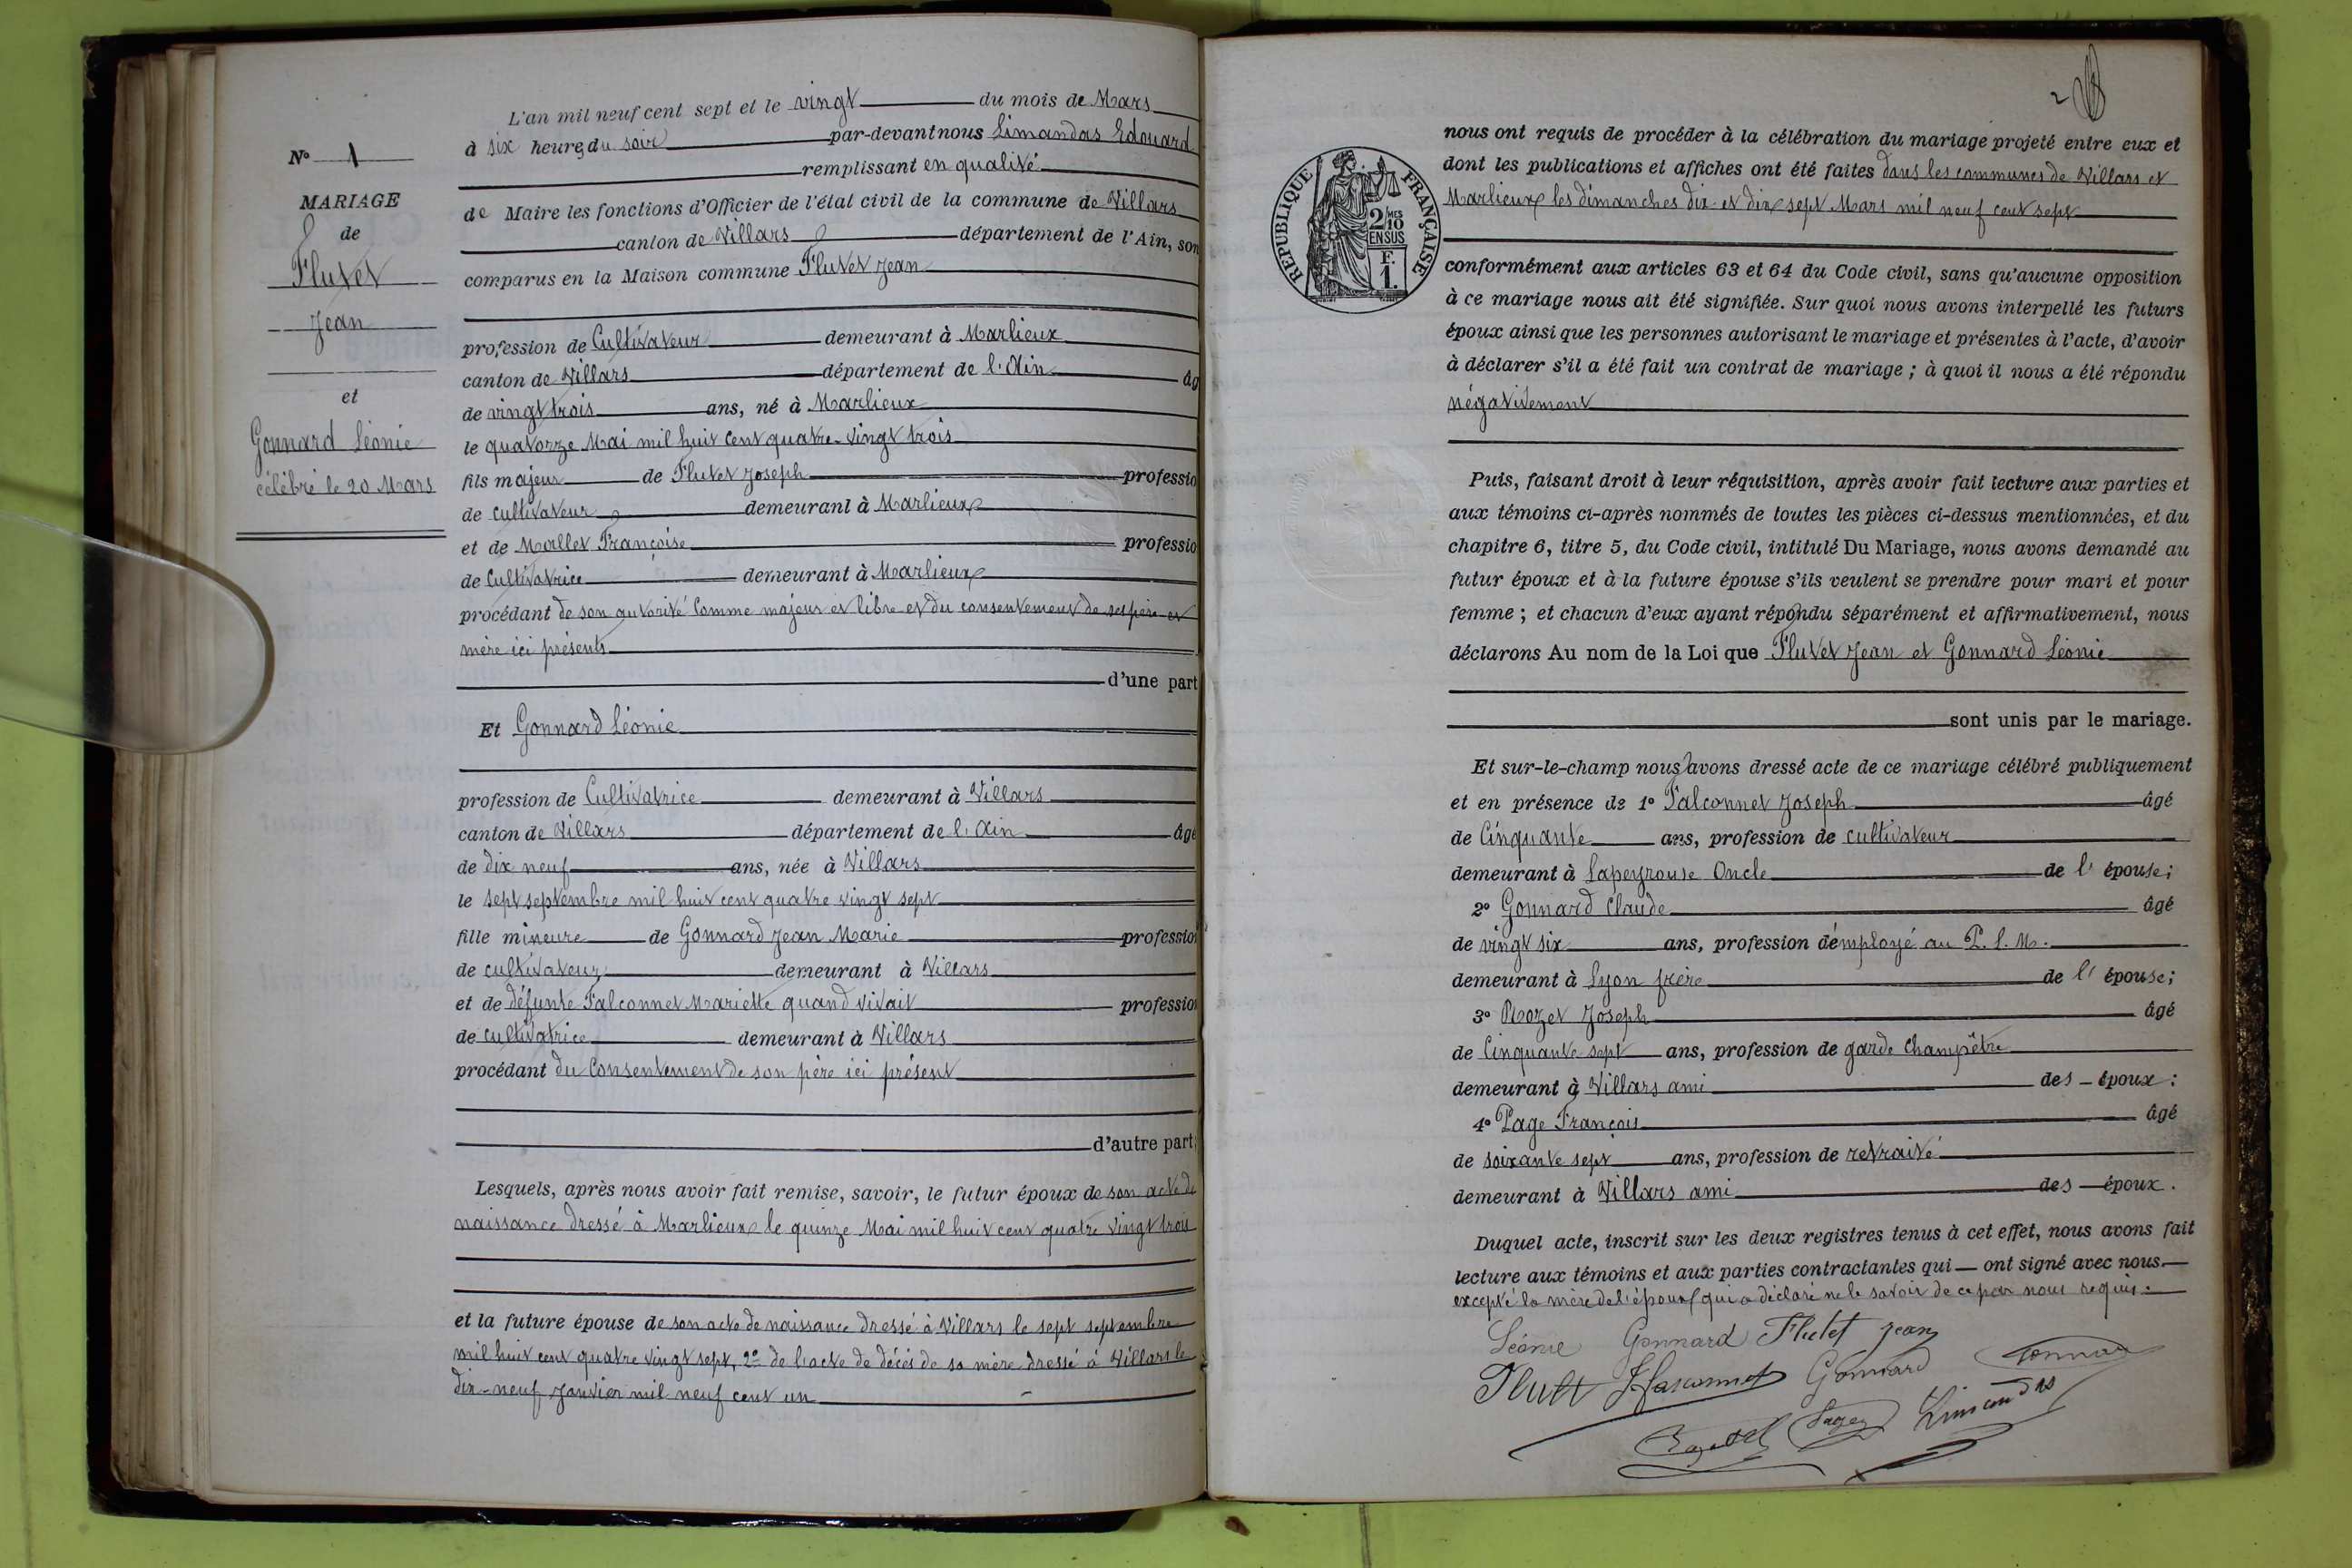 N° 1
MARIAGE
de
Flutet
Jean
et
Gonnard Léonie
célébré le 20 Mars
L'an mil neuf cent sept et le vingt du mois de Mars
à six heures du soir par-devant nous Limandas Edouard
remplissant en qualité
de Maire les fonctions d'Officier de l'état civil de la commune de Villars
canton de Villars département de l'Ain, son
comparus en la Maison commune Flutet Jean
profession de Cultivateur demeurant à Marlieux
canton de Villars département de l'Ain âg
de vingt trois ans, né à Marlieux
le quatorze Mai mil huit cent quatre-vingt trois
fils majeur de Flutet Joseph professio
de cultivateur demeurant à Marlieux
et de Mallet Françoise professio
de Cultivatrice demeurant à Marlieux
procédant de son autorité comme majeur et libre et du consentement de ses père et
mère ici présents
d'une part
Et Gonnard Léonie
profession de Cultivatrice demeurant à Villars
canton de Villars département de l'Ain âgé
de dix neuf ans, née à Villars
le sept septembre mil huit cent quatre vingt sept
fille mineure de Gonnard Jean Marie profession
de cultivateur demeurant à Villars
et de défunte Falconnet Mariette quand vivait profession
de cultivatrice demeurant à Villars
procédant du Consentement de son père ici présent
d'autre part;
Lesquels, après nous avoir fait remise, savoir, le futur époux de son acte de
naissance dressé à Marlieux le quinze Mai mil huit cent quatre vingt trois
et la future épouse de son acte de naissance dressé à Villars le sept septembre
mil huit cent quatre vingt sept, 2° de l'acte de décès de sa mère dressé à Villars le
dix-neuf Janvier mil neuf cent un
2
RÉPUBLIQUE FRANÇAISE
2/10 MES
EN SUS
F.
1.
nous ont requis de procéder à la célébration du mariage projeté entre eux et
dont les publications et affiches ont été faites dans les communes de Villars et
Marlieux les dimanches dix et dix sept Mars mil neuf cent sept
conformément aux articles 63 et 64 du Code civil, sans qu'aucune opposition
à ce mariage nous ait été signifiée. Sur quoi nous avons interpellé les futurs
époux ainsi que les personnes autorisant le mariage et présentes à l'acte, d'avoir
à déclarer s'il a été fait un contrat de mariage ; à quoi il nous a été répondu
négativement
Puis, faisant droit à leur réquisition, après avoir fait lecture aux parties et
aux témoins ci-après nommés de toutes les pièces ci-dessus mentionnées, et du
chapitre 6, titre 5, du Code civil, intitulé Du Mariage, nous avons demandé au
futur époux et à la future épouse s'ils veulent se prendre pour mari et pour
femme ; et chacun d'eux ayant répondu séparément et affirmativement, nous
déclarons Au nom de la Loi que Flutet Jean et Gonnard Léonie
sont unis par le mariage.
Et sur-le-champ nous avons dressé acte de ce mariage célébré publiquement
et en présence de 1° Falconnet Joseph âgé
de Cinquante ans, profession de cultivateur
demeurant à Lapeyrouse Oncle de l'épouse;
2° Gonnard Claude âgé
de vingt six ans, profession d'employé au P. L. M.
demeurant à Lyon frère de l'épouse;
3° Rozet Joseph âgé
de Cinquante sept ans, profession de garde champêtre
demeurant à Villars ami des époux:
4° Page François âgé
de soixante sept ans, profession de retraité
demeurant à Villars ami des époux.
Duquel acte, inscrit sur les deux registres tenus à cet effet, nous avons fait
lecture aux témoins et aux parties contractantes qui ont signé avec nous.
excepté la mère de l'époux qui a déclaré ne le savoir de ce par nous requis.
Léonie Gonnard Flutet Jean
Flutet J Falconnet Gonnard Gonnard
Limandas